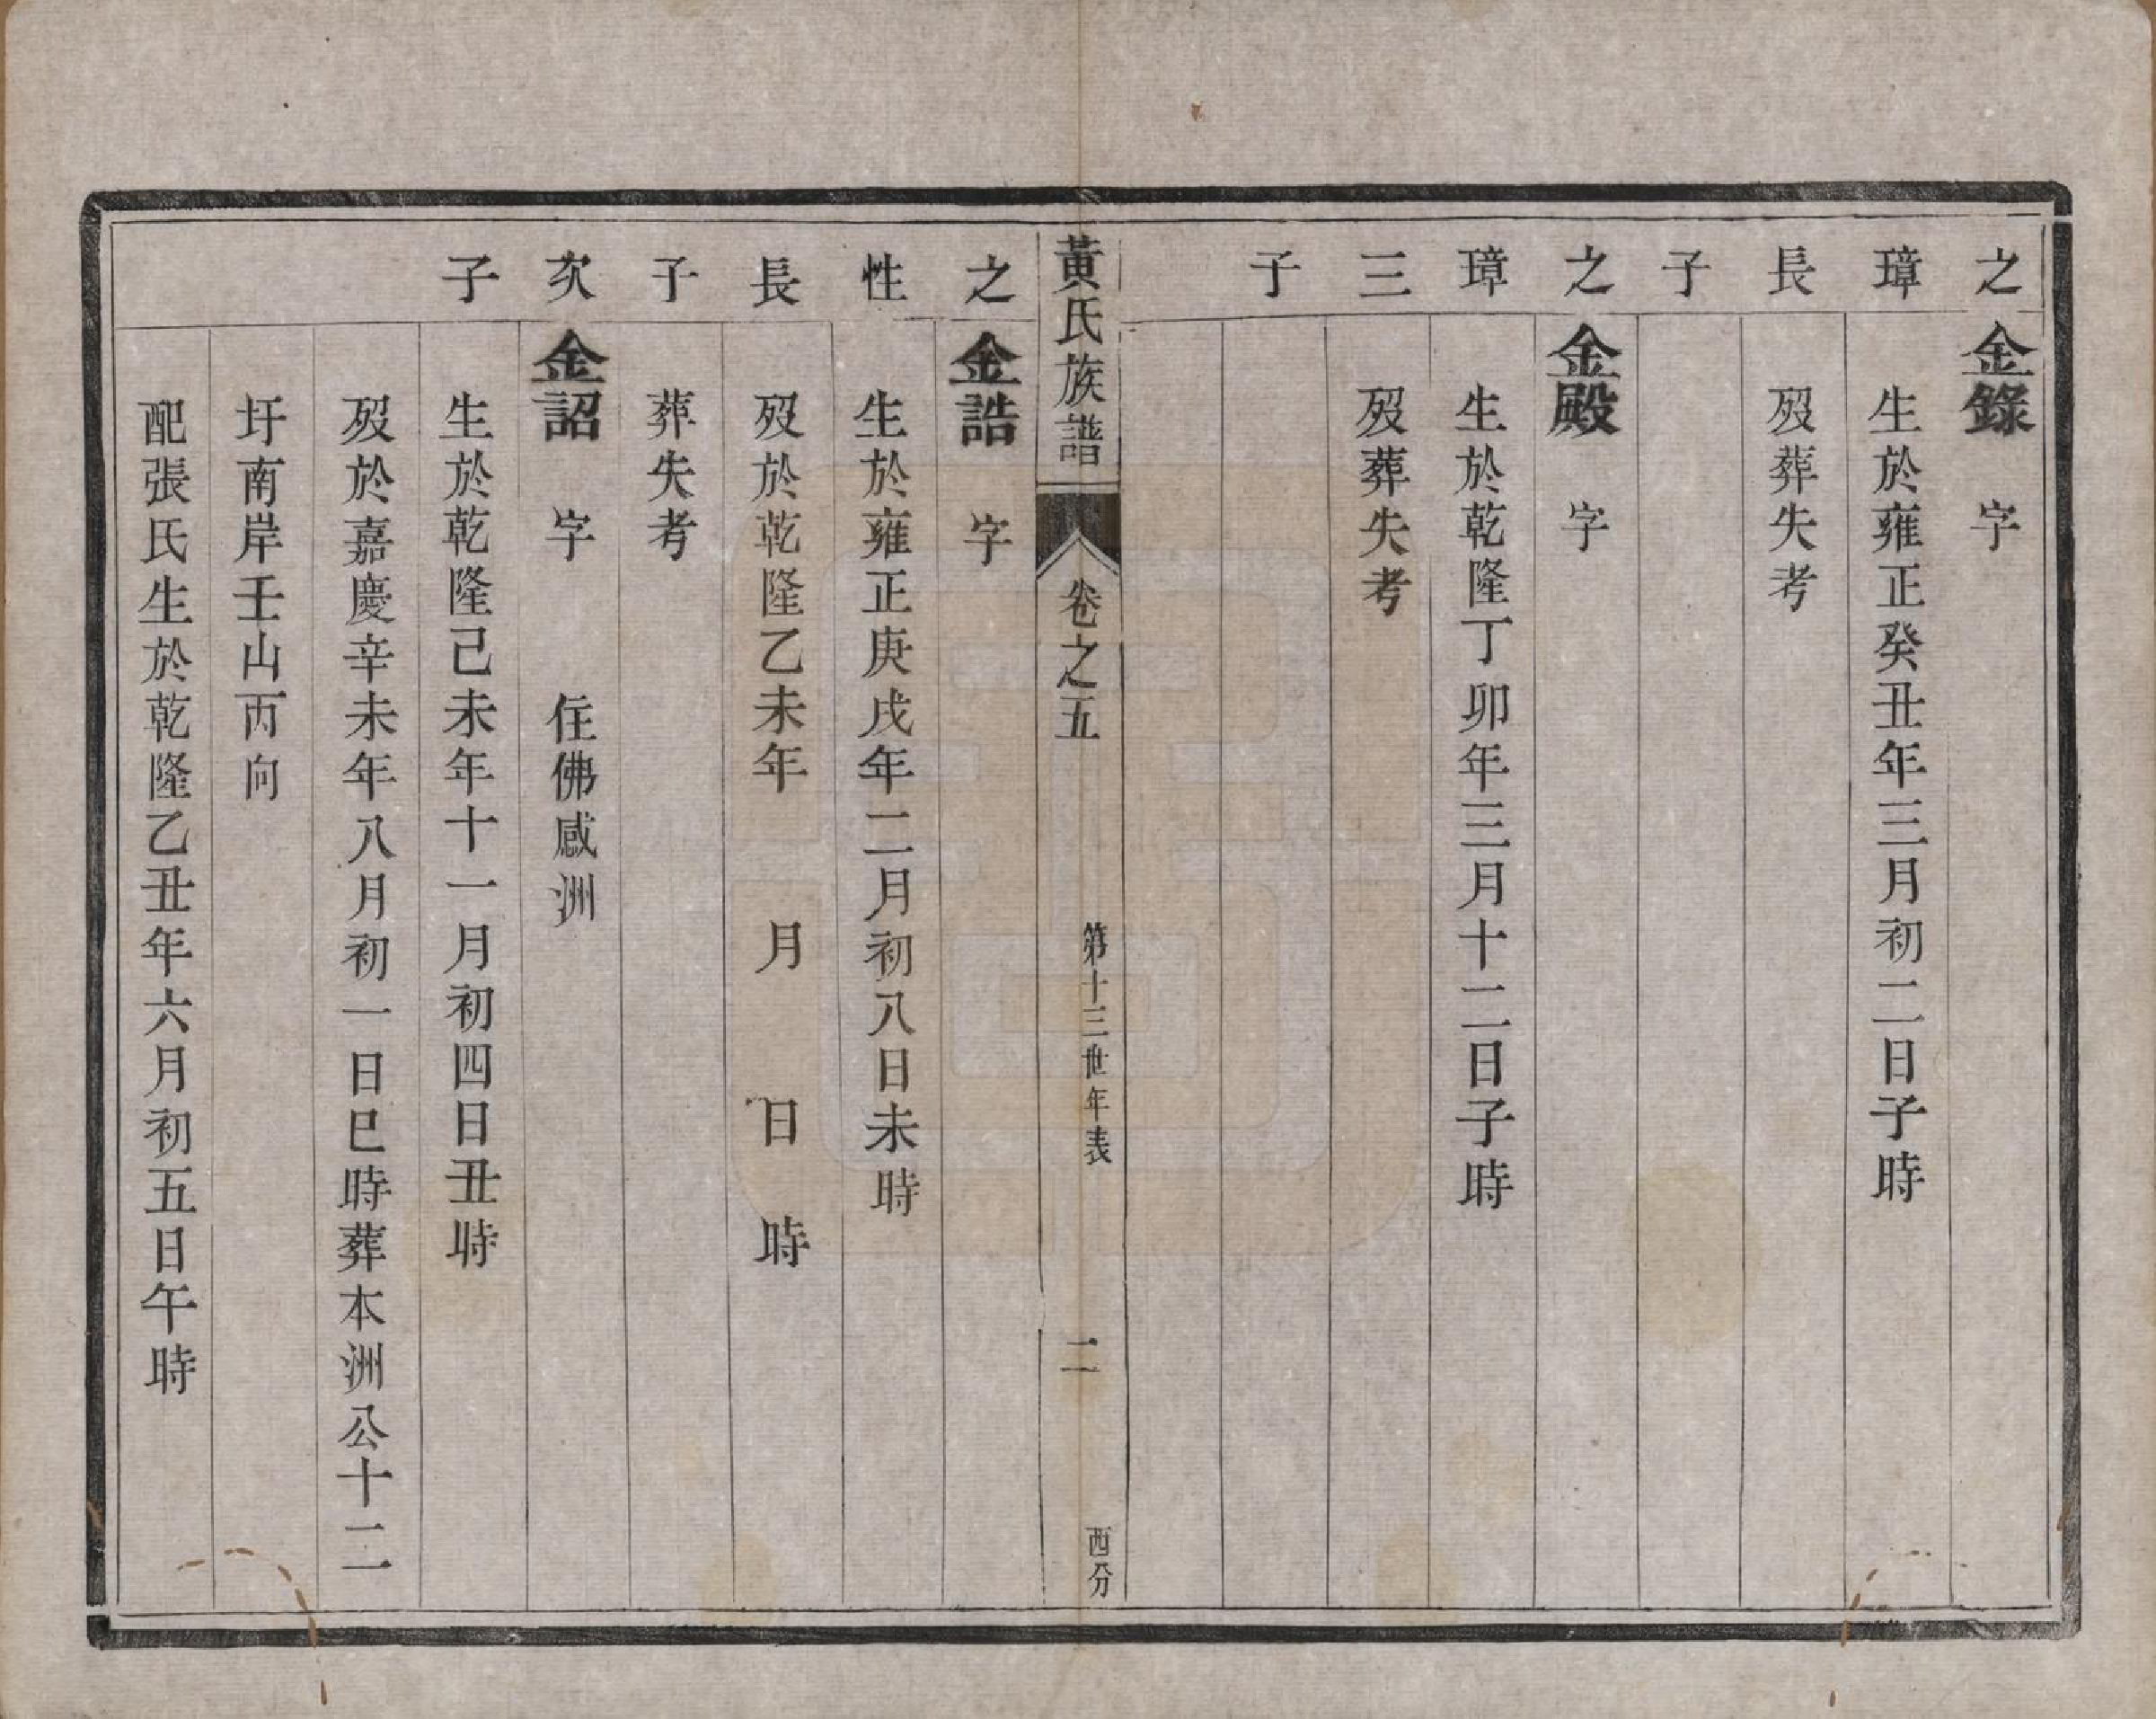 之 金錄 字
璋 生於雍正癸丑年三月初二日子時
長 歿葬失考
子
之 金殿 字
璋 生於乾隆丁卯年三月十二日子時
三 歿葬失考
子
黃氏族譜 卷之五 第十三世年表 二 西分
之 金誥 字
性 生於雍正庚戌年二月初八日未時
長 歿於乾隆乙未年 月 日 時
子 葬失考
次 金詔 字 住佛感洲
子 生於乾隆己未年十一月初四日丑時
歿於嘉慶辛未年八月初一日巳時葬本洲公十二
圩南岸壬山丙向
配張氏生於乾隆乙丑年六月初五日午時